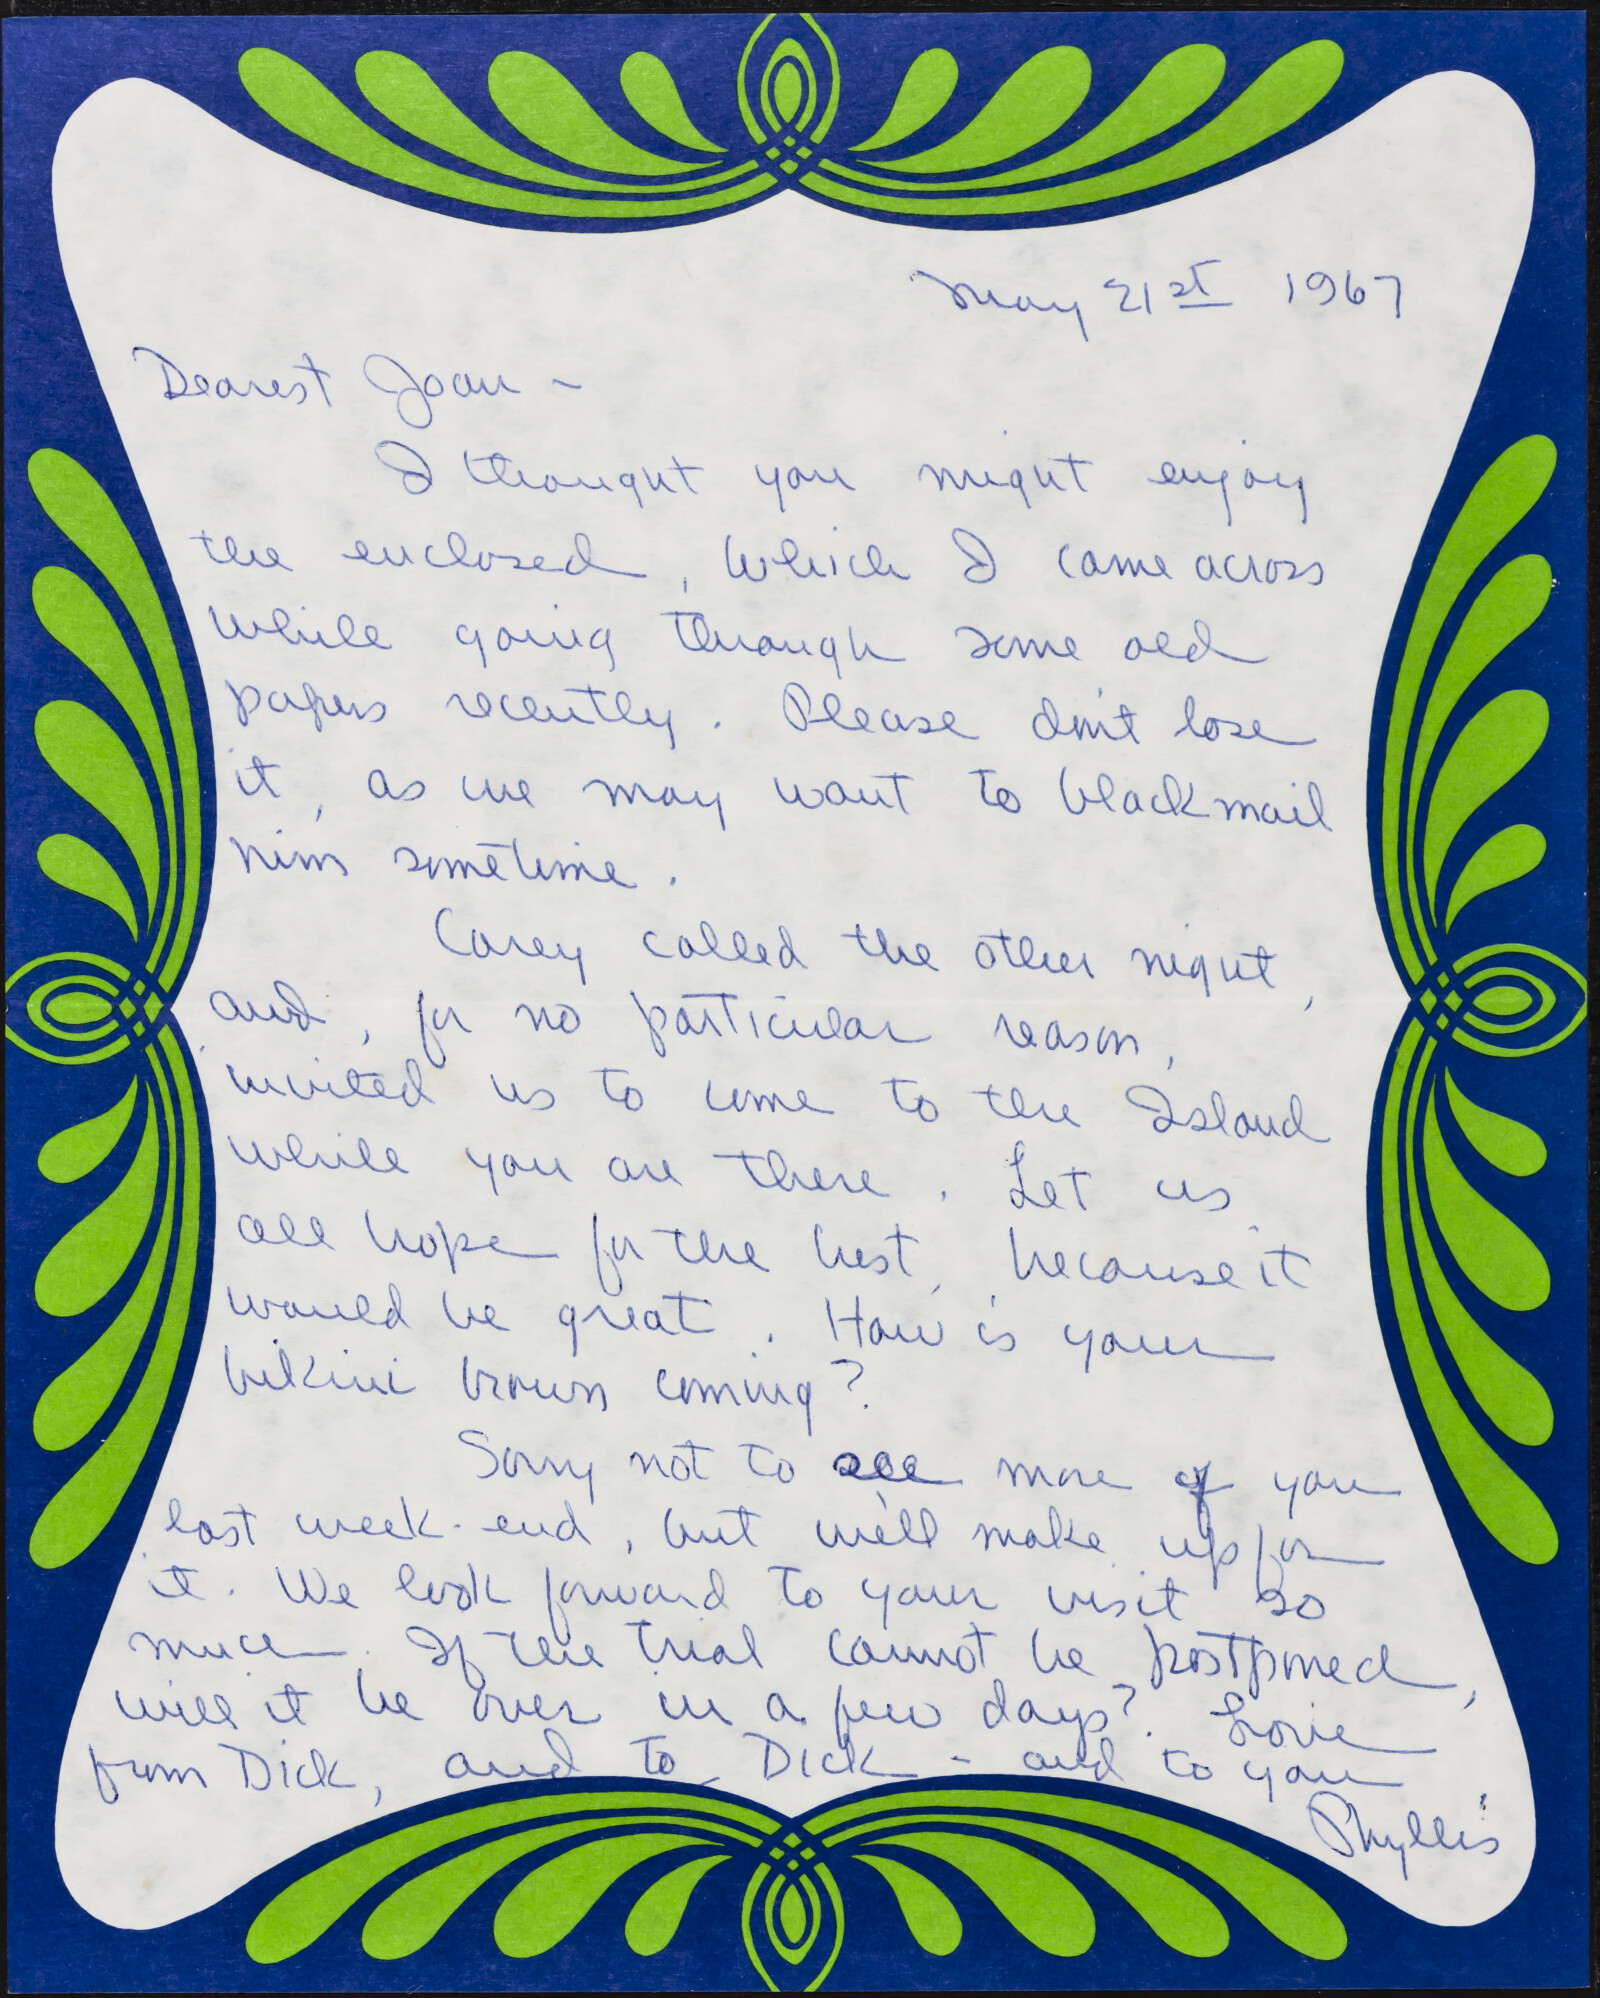 May 21st 1967
Dearest Joan -
I thought you might enjoy
the enclosed, which I came across
while going through some old
papers recently. Please don't lose
it, as we may want to blackmail
him sometime.
Carey called the other night,
and, for no particular reason,
invited us to come to the Island
while you are there. Let us
all hope for the best, because it
would be great. How is your
bikini brown coming?
Sorry not to see more of you
last week-end, but we'll make up for
it. We look forward to your visit so
much. If the trial cannot be postponed,
will it be over in a few days? Love
from Dick, and to Dick - and to you
Phyllis